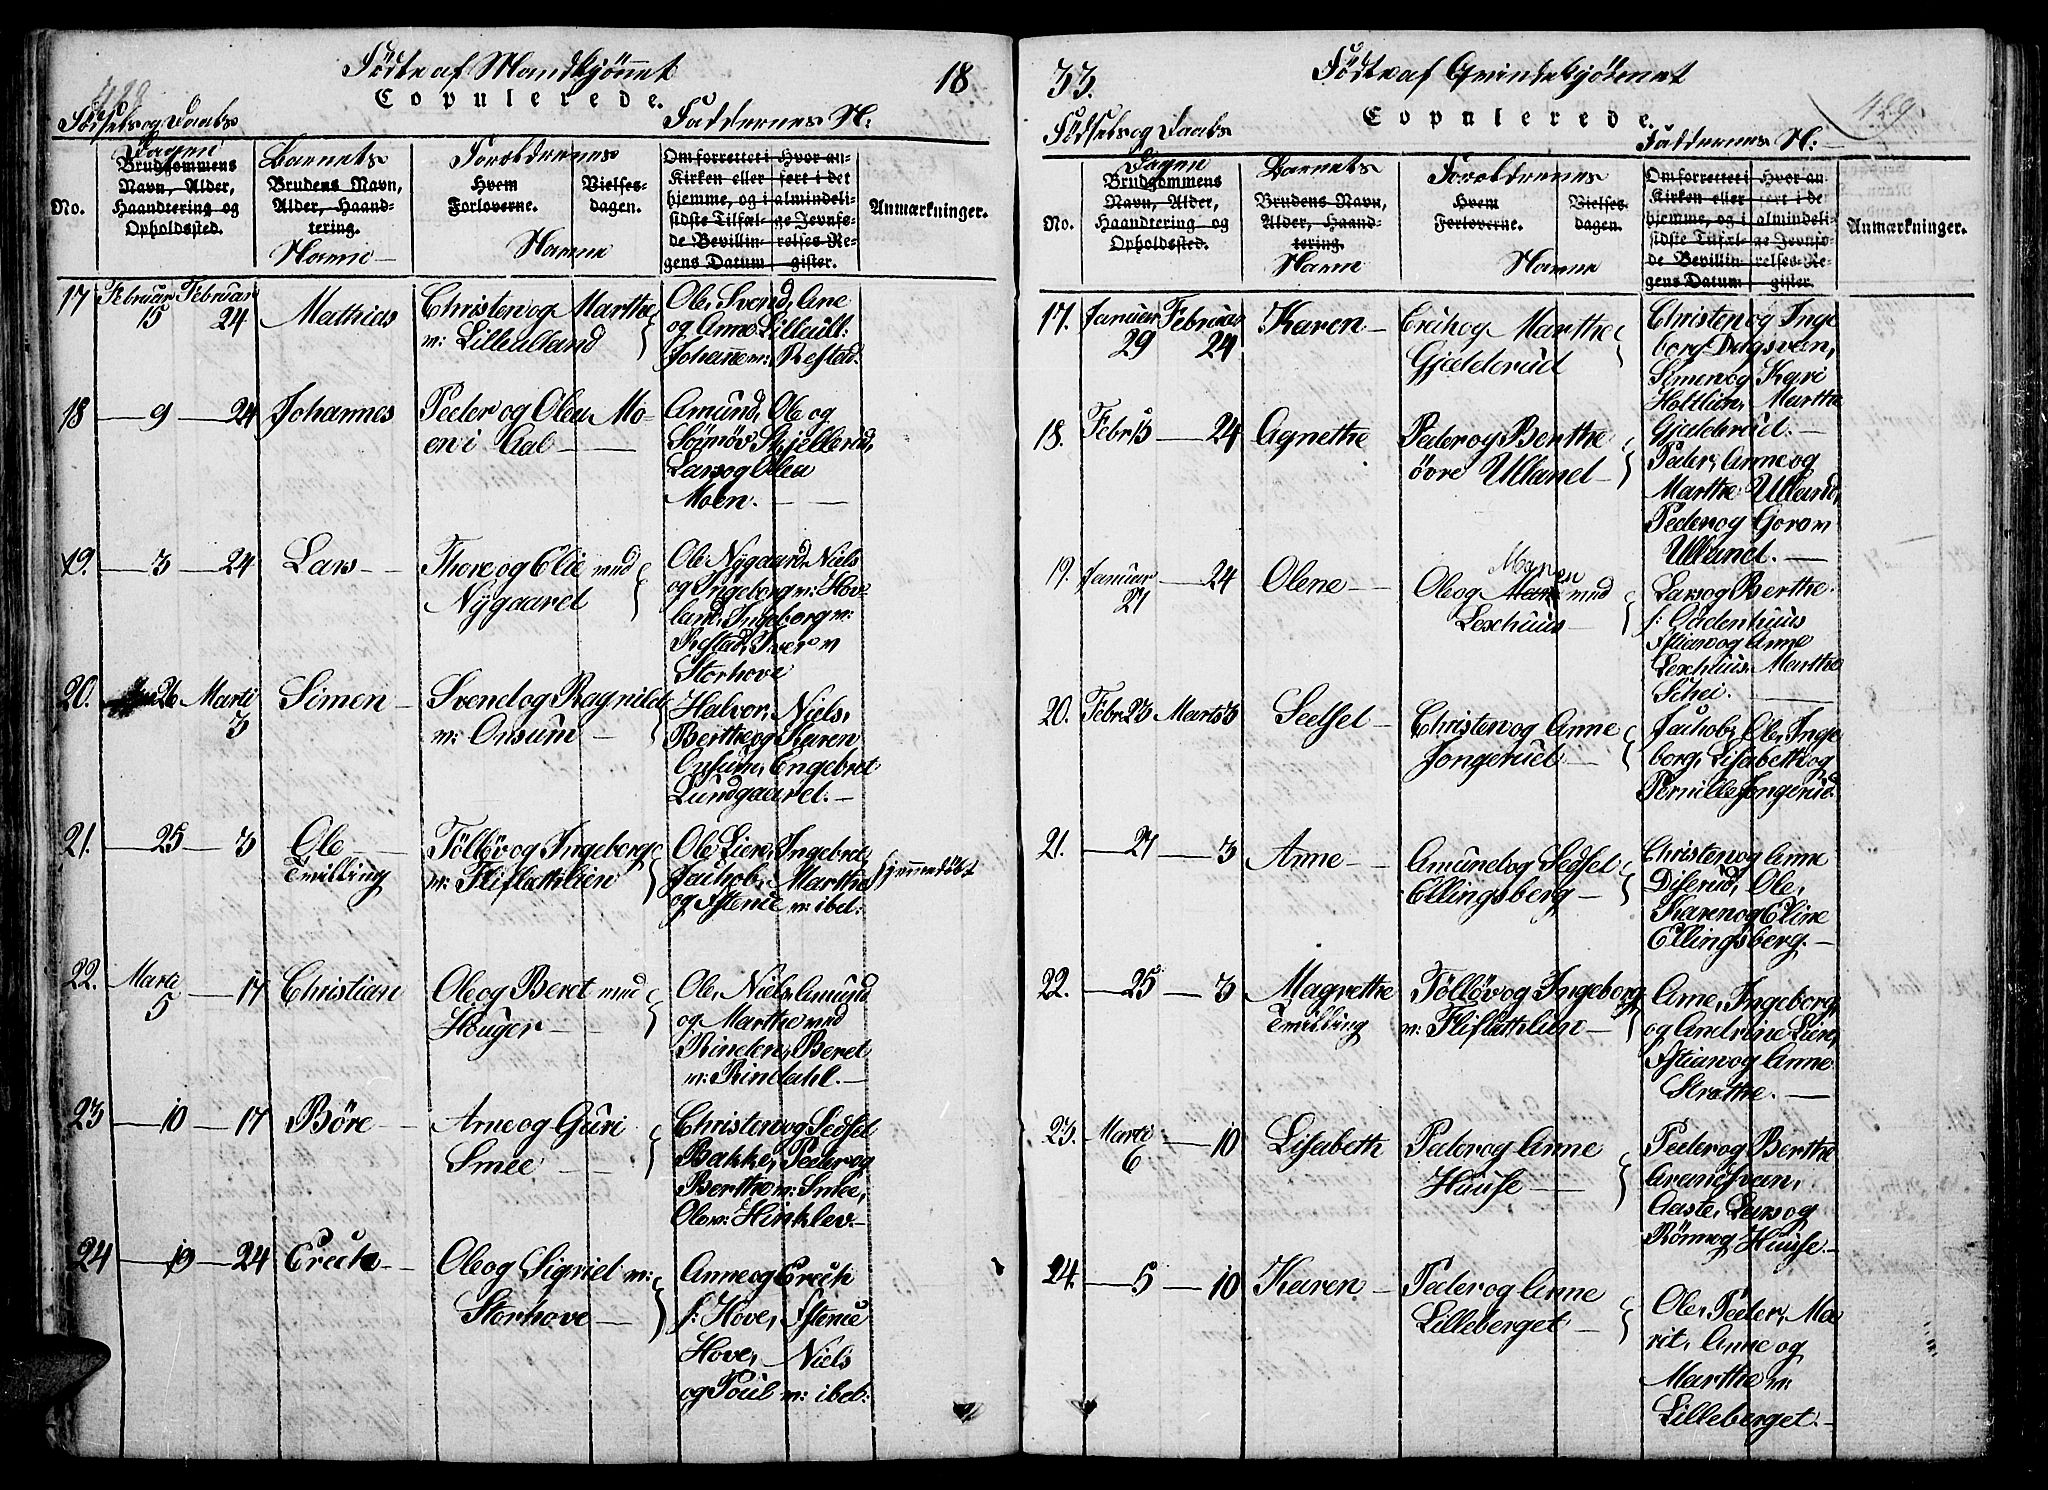 Födte af Mandkjönnet 18
Copulerede.
Födsels og Daabs Faddernes N:
Dagen Barnets Foræeldrenes
No. Brudgommens Navn, Alder, Haandtering og Opholdssted. Brudens Navn, Alder, Haandtering. Hvem Forloverne. Vielsesdagen. Om forrettet i Kirken eller hjemme, og i sidste Tilfælde Bevillingens Datum Hvor anført i det almindelige Jevnførelses-Register. Anmærkninger.
Navne Navne
17 Februar 15 Februar 24 Mathias Christen og Marthe
m: Lilleulland
Ole, Svend, Ane
og Anne Lilleull:
Johanne m: Refstad.
18 — 9 — 24 Johannes Peder og Olea Mo-
en i Aal —
Amund, Ole og
Sönnöv Skjellerud,
Lars og Olea
Moen. —
19. — 3 — 24 Lars — Thore og Elie med
Nygaard
Ole Nygaard, Niels
og Ingeborg m: Hov-
land, Ingeborg m:
Refstad, Iver m
Storhove
20. 26 Marti 3 Simen — Svend og Ragnild
m: Onsum —
Halvor, Niels,
Berthe og Karen
Onsum, Engebret
Lundgaard. —
21. — 25 — 3 Ole —
Tvilling
Töllöv og Ingeborg
m: Fliflathlien
Ole Liere, Ingebret,
Jachob, Marthe
og Istenie m: ibel:
hjemmedöbt
22. Marti 5 — 17 Christian Ole og Beret med
Houger —
Ole, Niels, Amund
og Marthe med
Rinden, Beret
m: Rindahl. —
23 — 10 — 17 Böre — Arne og Guri
Smee —
Christen og Sedsel
Bakke, Peder og
Berthe m: Smee,
Ole m: Hinklev —
24 — 19 — 24 Erich — Ole og Signid m:
Storhove —
Anne og Erich
f: Hove, Istenie
Hove, Niels
og Poul m: ibel:
33. Födte af Qvindekjönnet
Copulerede. 489
Födsels og Daabs Faddernes N: —
Dagen Barnets Forældrenes
No. Brudgommens Navn, Alder, Haandtering og Opholdssted. Brudens Navn, Alder, Haandtering. Hvem Forloverne. Vielsesdagen. Om forrettet i Kirken eller hjemme, og i sidste Tilfælde Bevillingens Datum Hvor anført i det almindelige Jevnførelses-Register. Anmærkninger.
Navne Navne
17. Januar 29 Februar 24 Karen — Erich og Marthe
Gjelderud
Christen og Inge
borg Dagsveen,
Simen og Kari
Holtlien, Marthe
Gjelderud. —
18. Febr: 13 — 24 Agnethe Peder og Berthe
övre Ulland —
Peder, Anne og
Marthe Ulland,
Peder og Goro m
Ulland. —
19. Januar 27 — 24 Olene — Ole og Maren med
Lexhuus —
Lars og Berthe
f: Oddenhuus
Stian og Anne
Lexhuus, Marthe
Schei. —
20. Febr 23 Marts 3 Seedsel — Christen og Anne
Jongerud —
Jachob, Ole, Inge
borg, Lisabeth og
Pernille Jongerud.
21. — 27 — 3 Anne — Amund og Sedsel
Ellingsberg —
Christen og Anne
Diserud, Ole,
Karen og Eline
Ellingsberg. —
22. — 25 — 3 Magrethe
Tvilling
Töllöv og Ingeborg
m: Fliflathlien —
Arne, Ingeborg
og Andrine Liere,
Stian og Anne
Strathe. —
23. Marti 6 — 10 Lisabeth Peder og Anne
Huuse —
Peder og Berthe
Aronsveen,
Aaste, Lars og
Rönnog Huuse. —
24. — 5 — 10 Karen — Peder og Anne
Lilleberget —
Ole, Peder, Ma
rit, Anne og
Marthe m:
Lilleberget. —